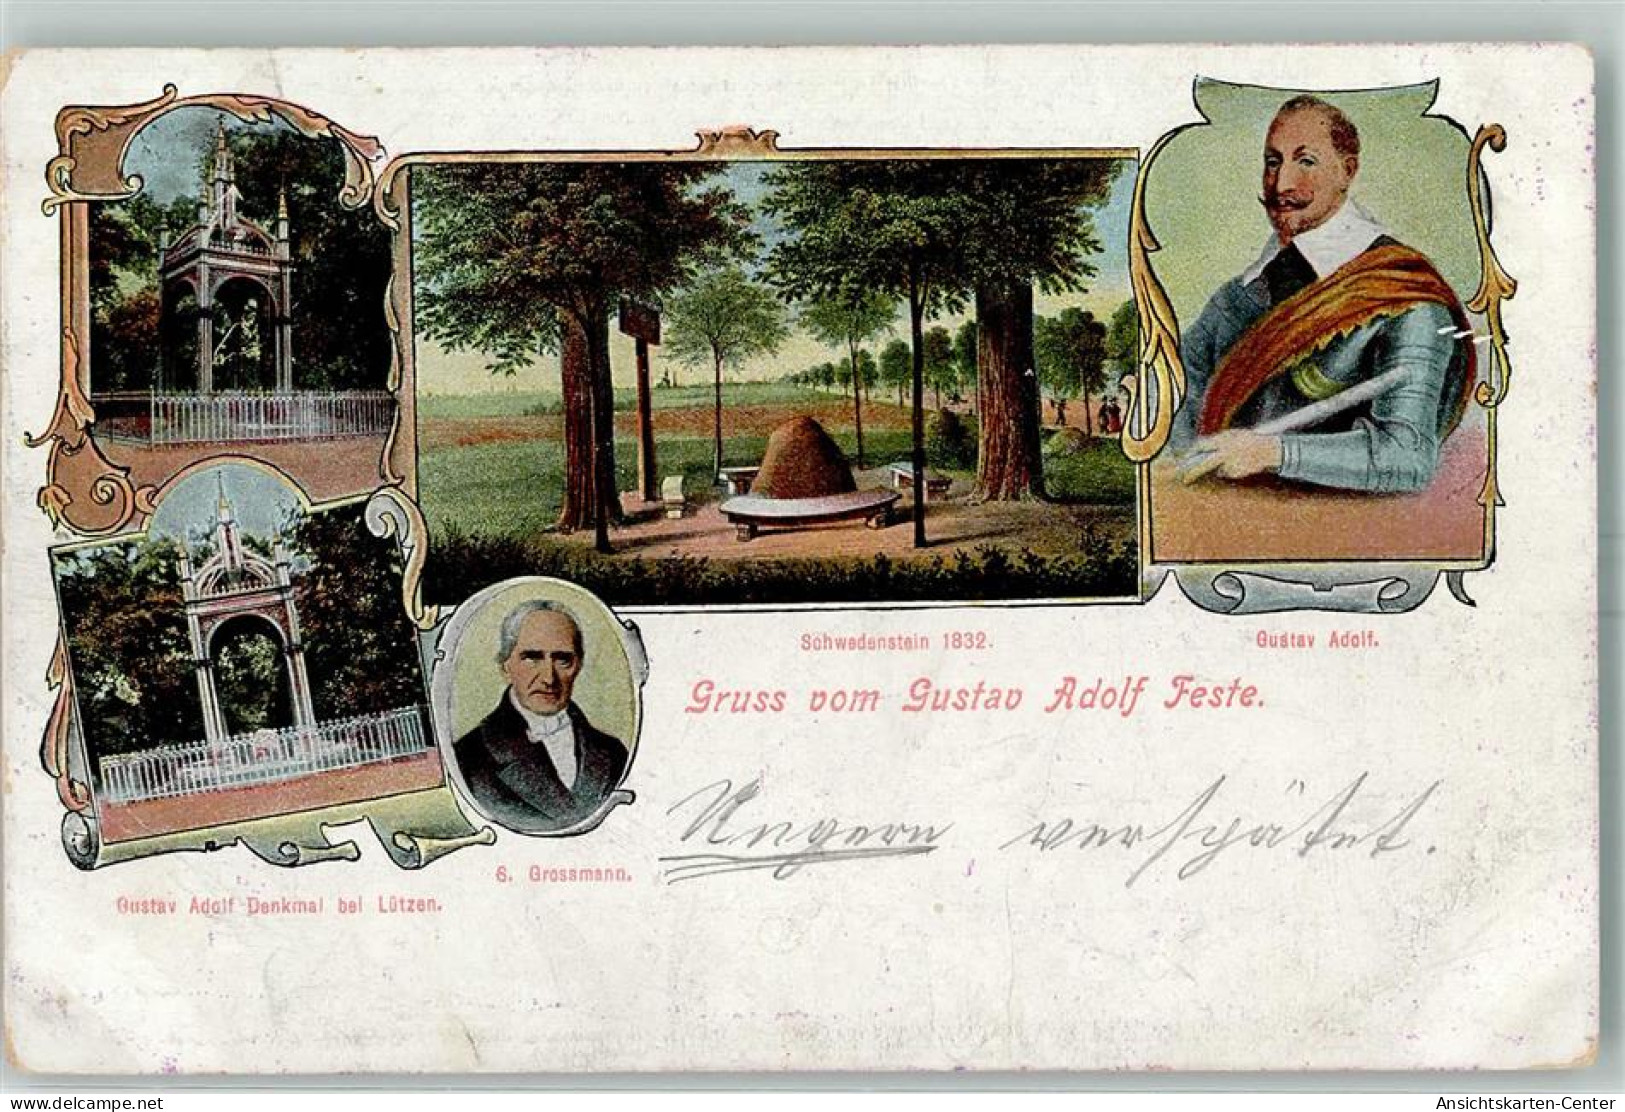 Schwedenstein 1832.
Gustav Adolf.
Gruss vom Gustav Adolf Feste.
Ungern verspätet.
G. Grossmann.
Gustav Adolf Denkmal bei Lützen.
delcampe.net
Ansichtskarten-Center